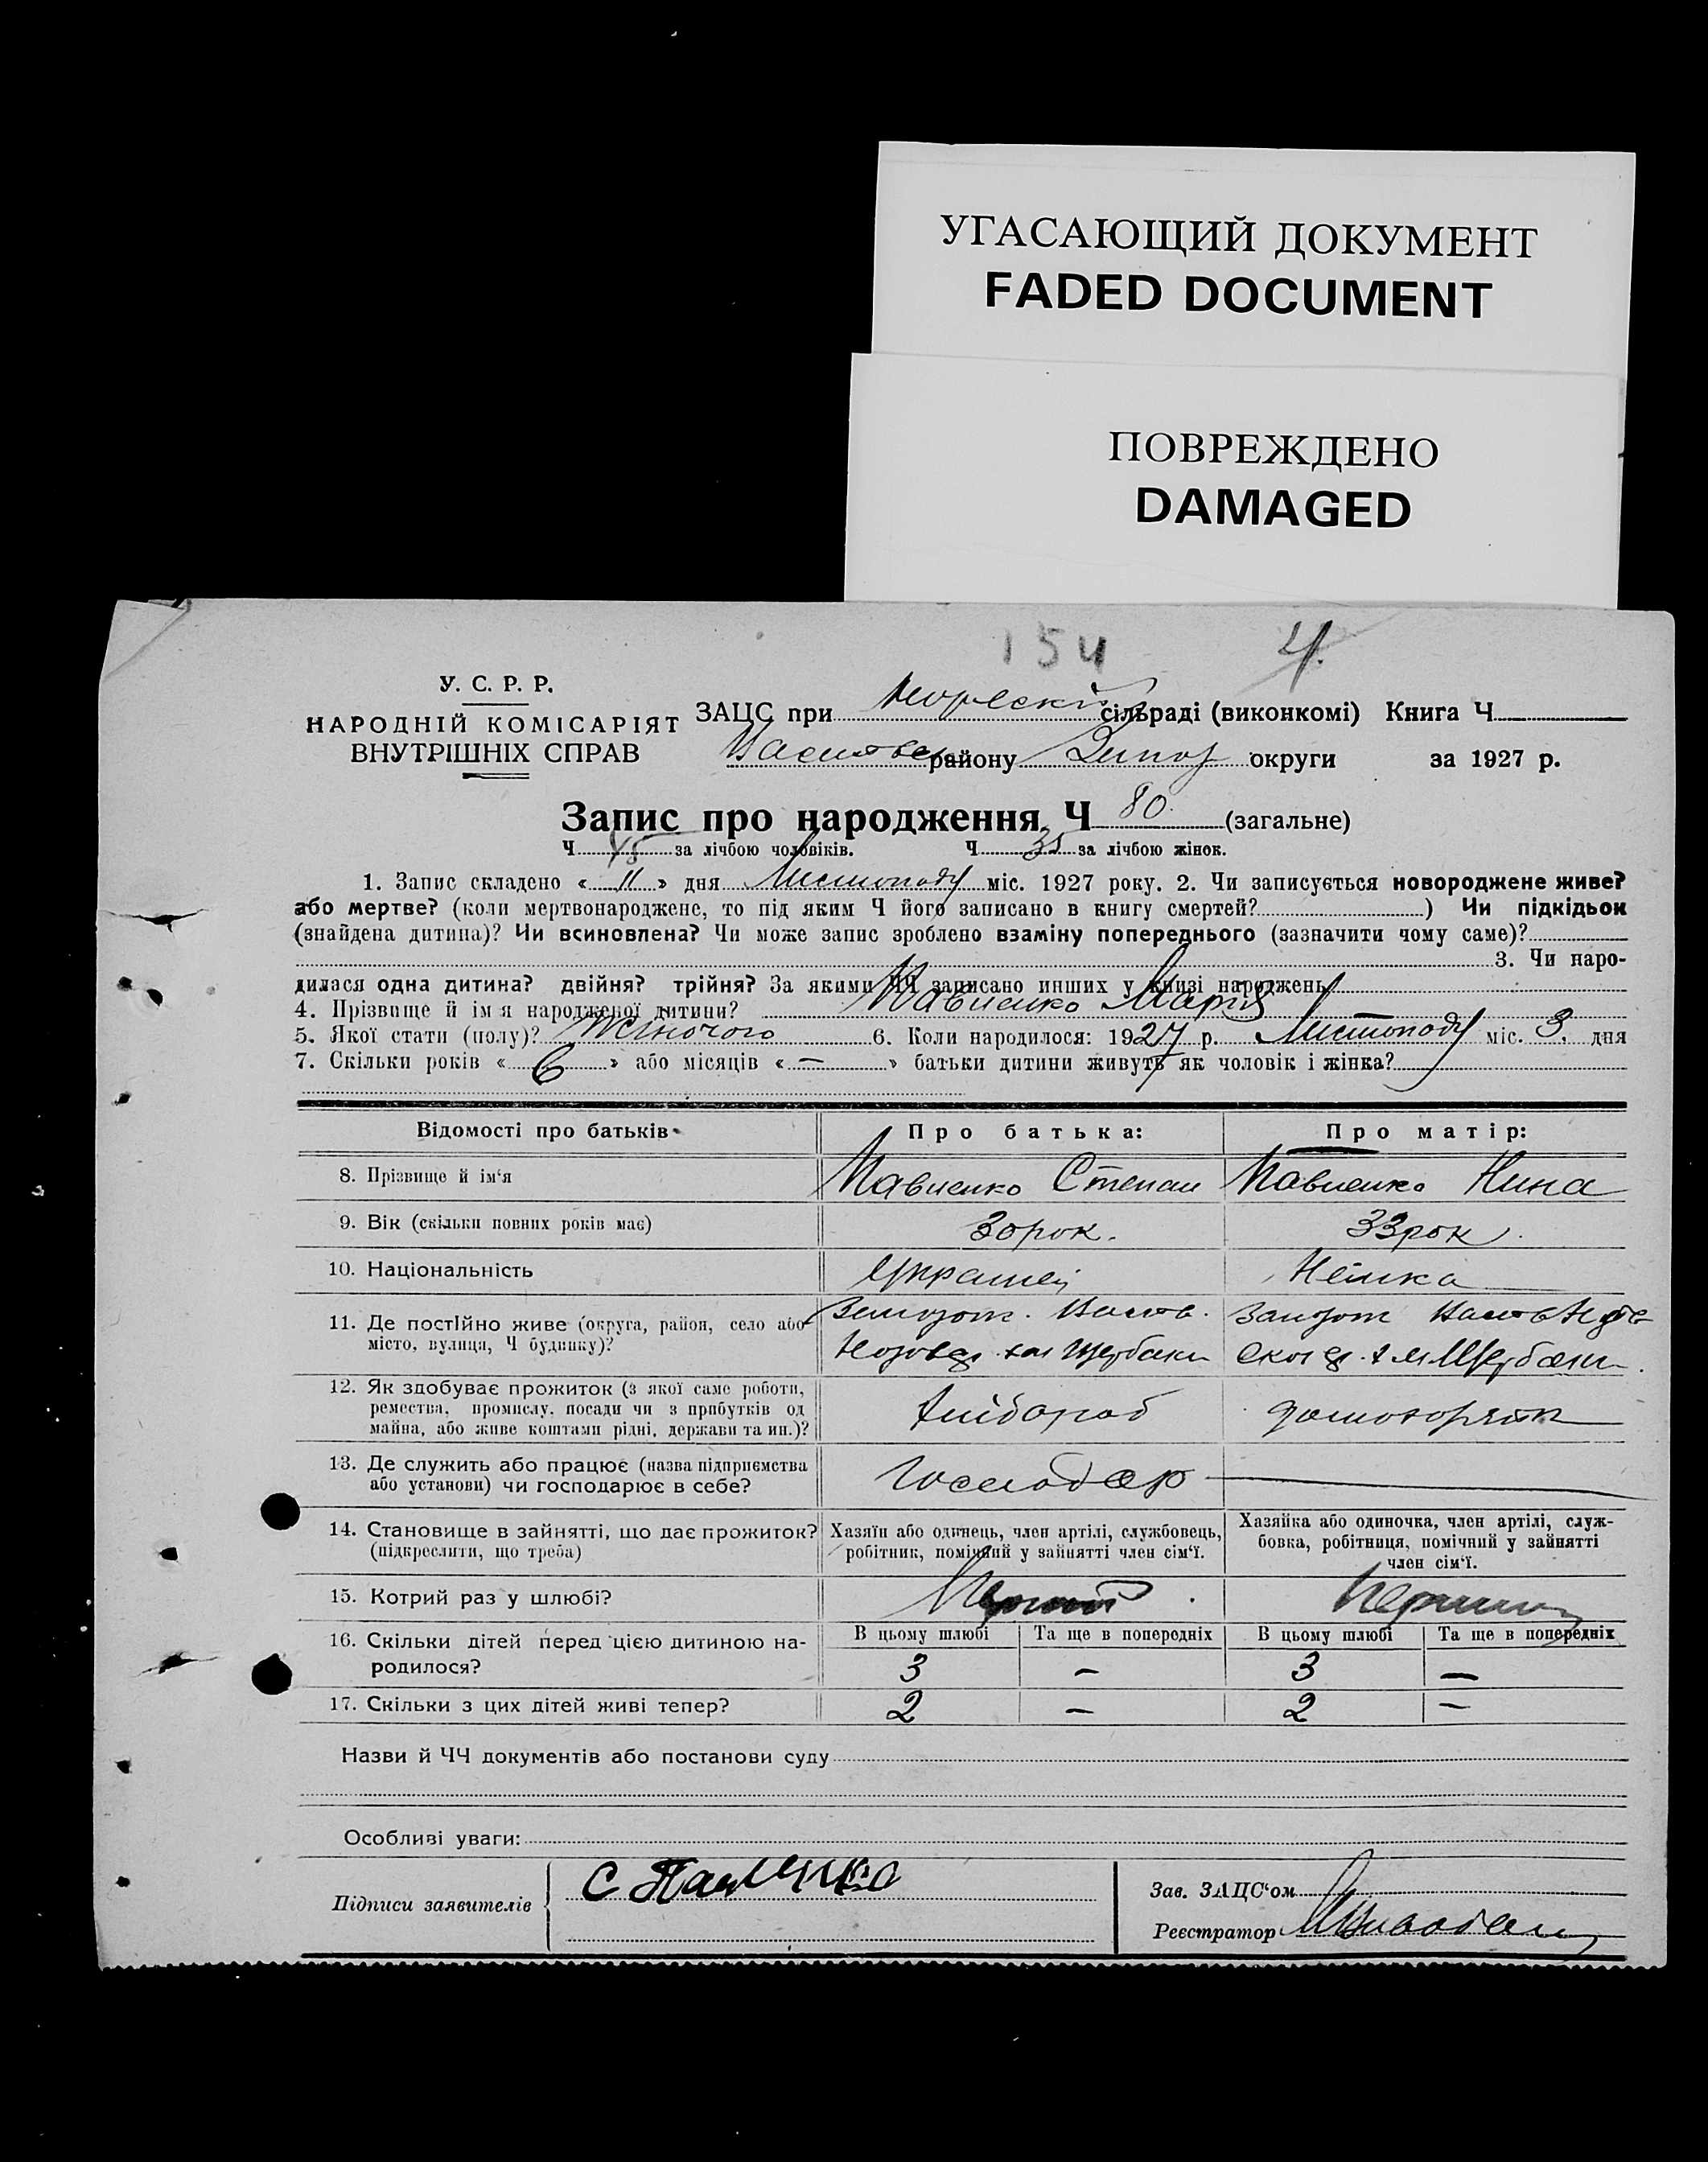 УГАСАЮЩИЙ ДОКУМЕНТ
FADED DOCUMENT
ПОВРЕЖДЕНО
DAMAGED
154 4.
У. С. Р. Р.
НАРОДНІЙ КОМІСАРІЯТ
ВНУТРІШНІХ СПРАВ
ЗАЦС при сільраді (виконкомі) Книга Ч
району округи за 1927 р.
Запис про народження Ч 80. (загальне)
Ч 45 за лічбою чоловіків. Ч 35 за лічбою жінок.
1. Запис складено « 11 » дня Листопаду міс. 1927 року. 2. Чи записується новороджене живе?
або мертве? (коли мертвонароджене, то під яким Ч його записано в книгу смертей? ) Чи підкідьок
(знайдена дитина)? Чи всиновлена? Чи може запис зроблено взаміну попереднього (зазначити чому саме)?
3. Чи наро-
дилася одна дитина? двійня? трійня? За якими ЧЧ записано инших у книзі народжень
4. Прізвище й ім я народженої дитини? Павленко Марія
5. Якої стати (полу)? Жіночого 6. Коли народилося: 1927 р. Листопаду міс. 3. дня
7. Скільки років « 6 » або місяців « — » батьки дитини живуть як чоловік і жінка?
Відомості про батьків Про батька: Про матір:
8. Прізвище й ім‘я Павленко Степан Павленко Нина
9. Вік (скільки повних років має) 30 рок. 33 рок.
10. Національність Украінец Немка
11. Де постійно живе (округа, район, село або
місто, вулиця, Ч будинку)?
Щербаки
12. Як здобуває прожиток (з якої саме роботи,
ремества, промислу, посади чи з прибутків од
майна, або живе коштами рідні, держави та ин.)?
Хлібороб
13. Де служить або працює (назва підприємства
або установи) чи господарює в себе?
Господар —
14. Становище в зайнятті, що дає прожиток?
(підкреслити, що треба)
Хазяїн або одинець, член артілі, службовець,
робітник, помічний у зайнятті член сім‘ї.
Хазяйка або одиночка, член артілі, служ-
бовка, робітниця, помічний у зайнятті
член сім‘ї.
15. Котрий раз у шлюбі? Перший
16. Скільки дітей перед цією дитиною на-
родилося?
В цьому шлюбі Та ще в попередніх В цьому шлюбі Та ще в попередніх
3 — 3 —
17. Скільки з цих дітей живі тепер? 2 — 2 —
Назви й ЧЧ документів або постанови суду
Особливі уваги:
Підписи заявителів С Павленко
Зав. ЗАЦС‘ом
Реєстратор